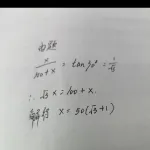 由题
x/(100+x) = tan30° = 1/√3
∴ √3 x = 100 + x.
解得 x = 50(√3+1)